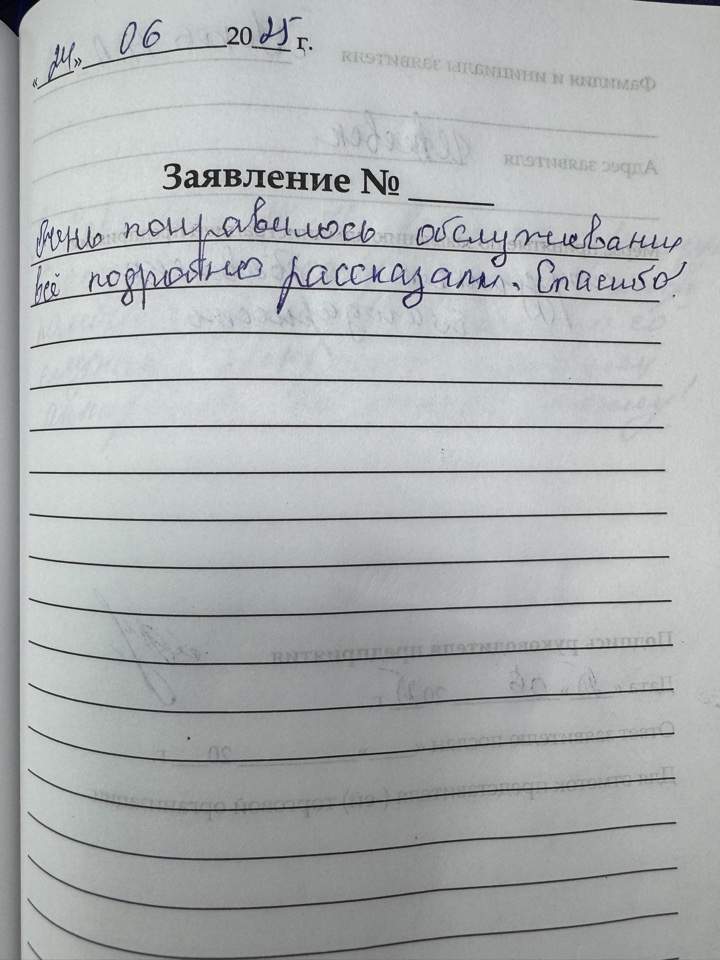 «24» 06 2025 г.
Заявление №
Очень понравилось обслуживание
всё подробно рассказали. Спасибо!